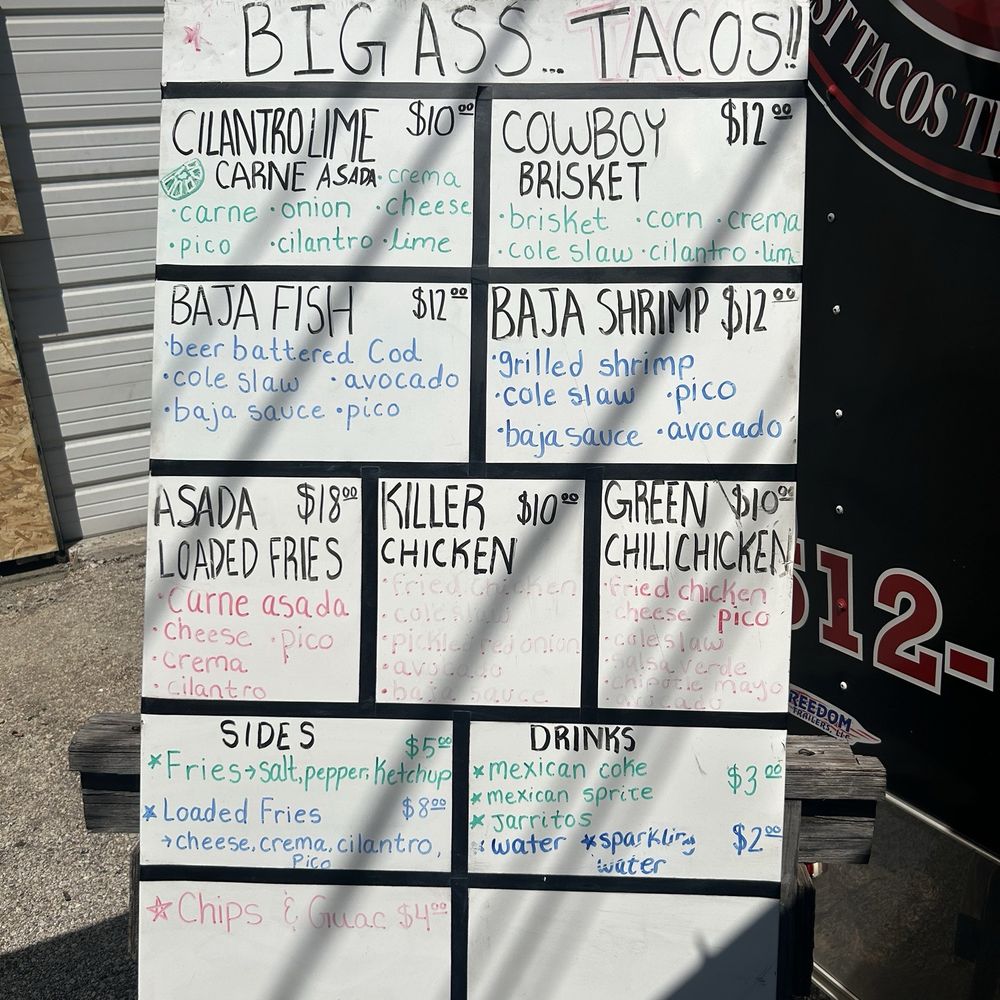 BIG ASS... TACOS!!
CILANTRO LIME $10.00
CARNE ASADA · crema
· carne · onion · cheese
· pico · cilantro · lime
COWBOY $12.00
BRISKET
· brisket · corn · crema
· cole slaw · cilantro · lim
BAJA FISH $12.00
· beer battered Cod
· cole slaw · avocado
· baja sauce · pico
BAJA SHRIMP $12.00
· grilled shrimp
· cole slaw · pico
· baja sauce · avocado
ASADA $18.00
LOADED FRIES
· carne asada
· cheese · pico
· crema
· cilantro
KILLER $10.00
CHICKEN
· fried chicken
· coleslaw
· pickled red onion
· avocado
· baja sauce
GREEN $10.00
CHILI CHICKEN
· fried chicken
cheese pico
· coleslaw
salsa verde
· chipotle mayo
avocado
SIDES
$5.00
* Fries → salt, pepper, Ketchup
* Loaded Fries $8.00
→ cheese, crema, cilantro,
Pico
DRINKS
* mexican coke $3.00
* mexican sprite
* Jarritos
* water * sparkling $2.00
water
☆ Chips & Guac $4.00
ST TACOS T
512-
REEDOM
TRAILERS, LLC